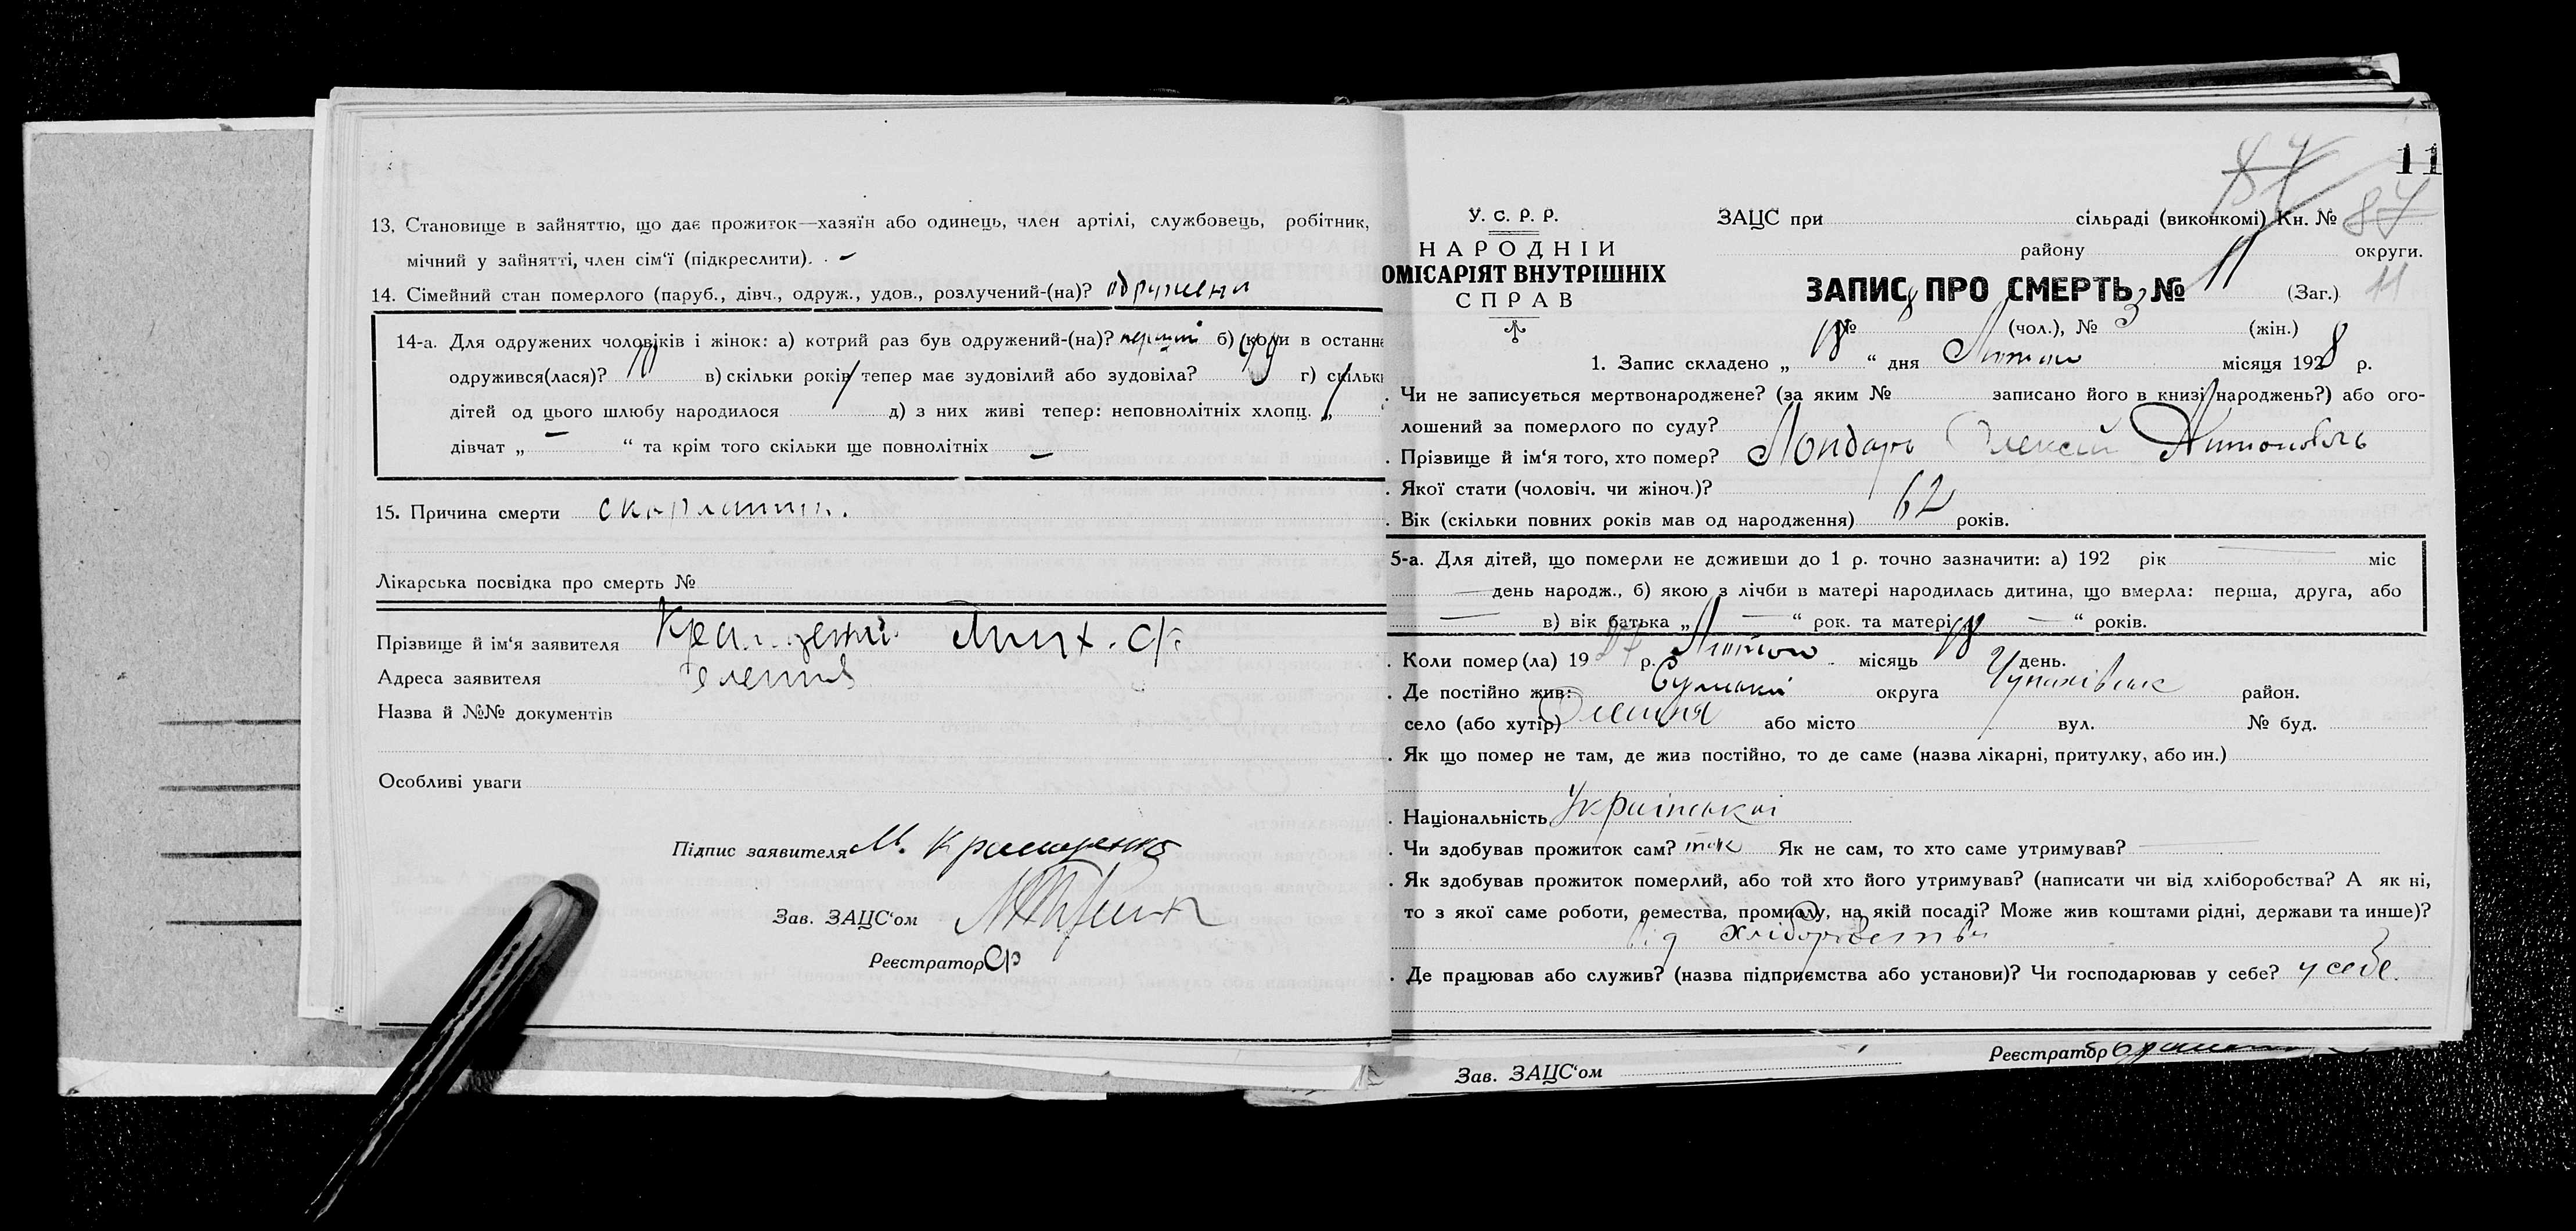 13. Становище в зайняттю, що дає прожиток—хазяїн або одинець, член артілі, службовець, робітник,
мічний у зайнятті, член сім‘ї (підкреслити).
14. Сімейний стан померлого (паруб., дівч., одруж., удов., розлучений-(на)?
14-а. Для одружених чоловіків і жінок: а) котрий раз був одружений-(на)? перший б) коли в останнє
одружився(лася)? в) скільки років тепер має зудовілий або зудовіла? г) скільки
дітей од цього шлюбу народилося д) з них живі тепер: неповнолітніх хлопц. „
дівчат „ “ та крім того скільки ще повнолітніх
15. Причина смерти
Лікарська посвідка про смерть №
Прізвище й ім‘я заявителя
Адреса заявителя
Назва й №№ документів
Особливі уваги
Підпис заявителя М.
Зав. ЗАЦС‘ом
Реєстратор
11
87
У. С. Р. Р.
НАРОДНІЙ
ОМІСАРІЯТ ВНУТРІШНІХ
СПРАВ
ЗАЦС при сільраді (виконкомі) Кн. № 87
району округи.
ЗАПИС ПРО СМЕРТЬ № 11 (Заг.) 11
№ 8 (чол.), № 3 (жін.)
1. Запис складено „ 18 “ дня Лютого місяця 1928 р.
. Чи не записується мертвонароджене? (за яким № записано його в книзі народжень?) або ого-
лошений за померлого по суду?
. Прізвище й ім‘я того, хто помер? Алексій Антонович
. Якої стати (чоловіч. чи жіноч.)?
. Вік (скільки повних років мав од народження) 62 років.
5-а. Для дітей, що померли не доживши до 1 р. точно зазначити: а) 192 рік міс
день народж., б) якою з лічби в матері народилась дитина, що вмерла: перша, друга, або
в) вік батька „ — “ рок. та матері „ — “ років.
. Коли помер (ла) 19 р. Лютого місяць день.
. Де постійно жив: Сумської округа район.
село (або хутір) або місто вул. № буд.
. Як що помер не там, де жив постійно, то де саме (назва лікарні, притулку, або ин.)
. Національність Української
. Чи здобував прожиток сам? так Як не сам, то хто саме утримував? —
. Як здобував прожиток померлий, або той хто його утримував? (написати чи від хліборобства? А як ні,
то з якої саме роботи, ремества, промислу, на якій посаді? Може жив коштами рідні, держави та инше)?
від хліборобства
. Де працював або служив? (назва підприємства або установи)? Чи господарював у себе? у себе.
Зав. ЗАЦС‘ом
Реєстратор